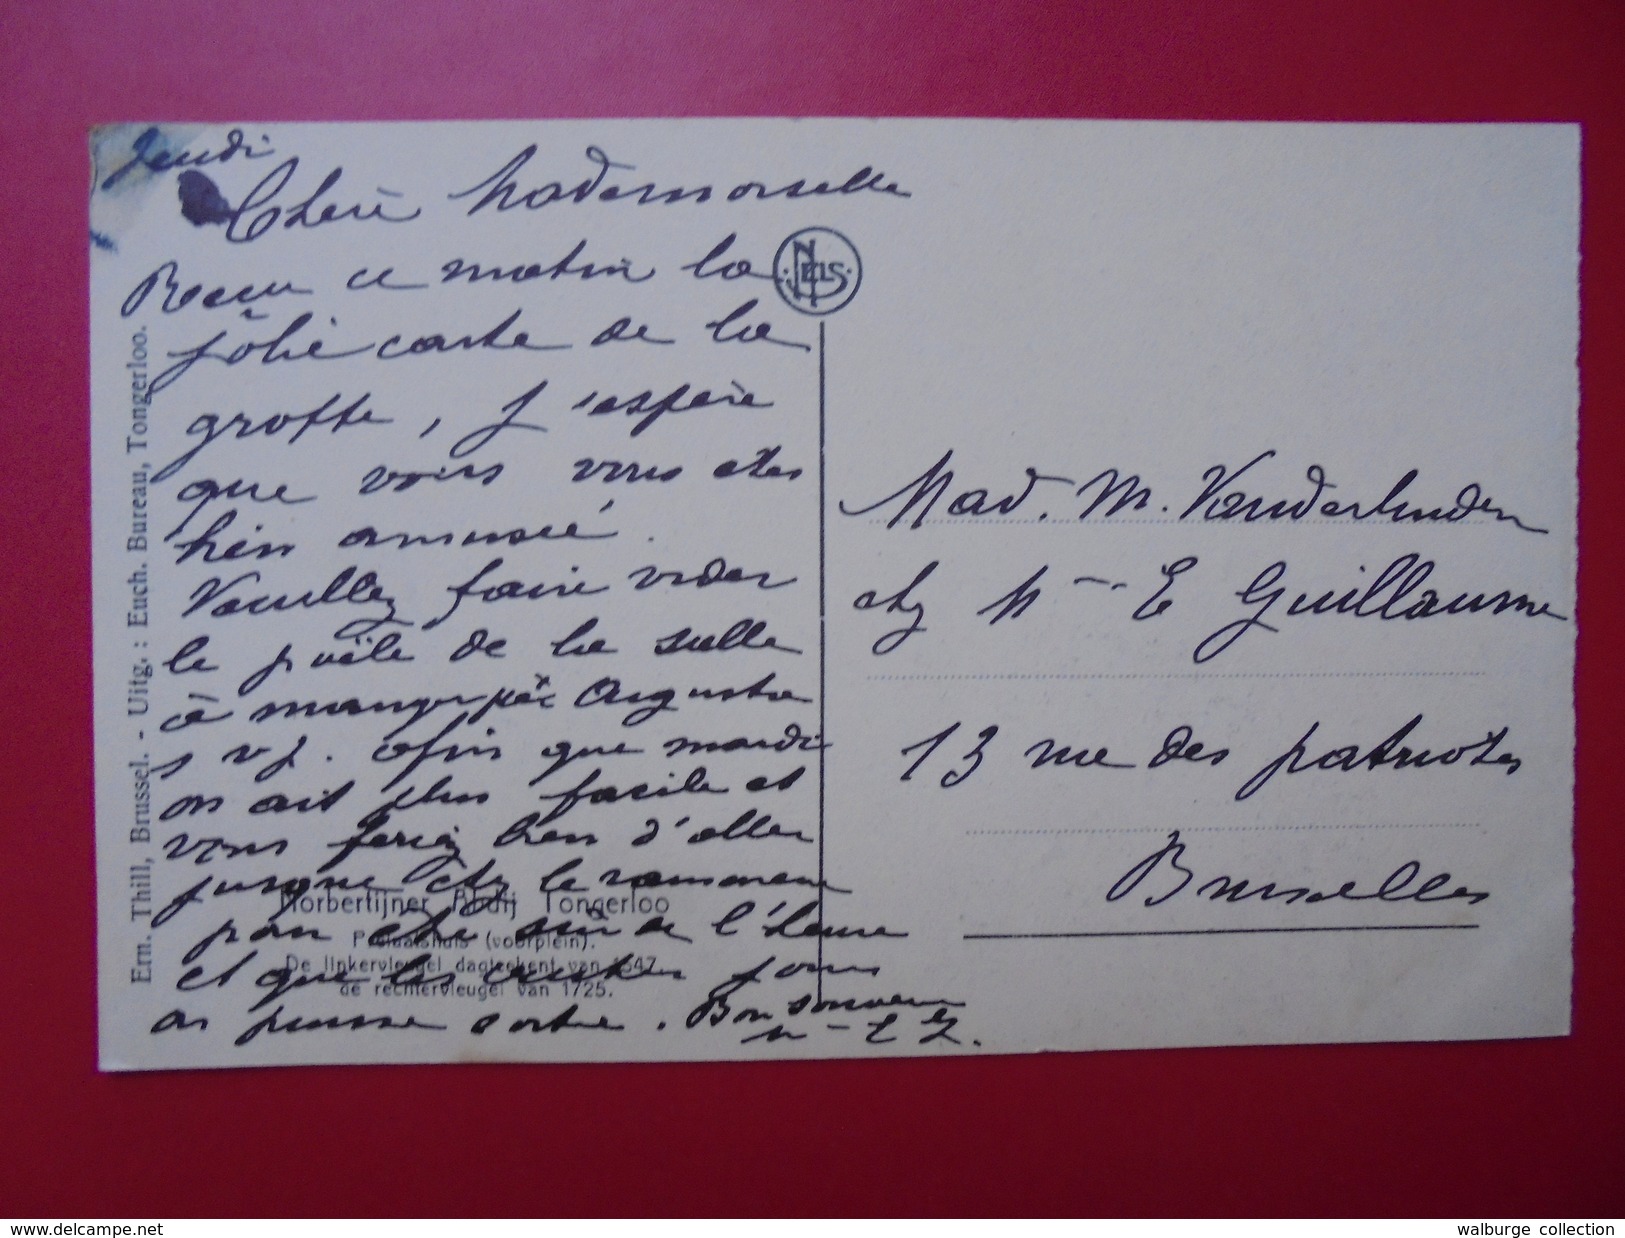 Jeudi
Chère Mademoiselle
Recu ce matin la
jolie carte de la
grotte, j'espère
que vous vous etes
bien amusé.
Veuillez faire vider
le poële de la salle
à manger par Augusta
s v p. afin que mardi
on ait plus facile et
vous feriez bien d'aller
jusque chez le ramoneur
pour être sûr de l'heure
et que les
on puisse
. Bon souvenir
NELS
Mad. M. Vanderlinden
chez Mme E Guillaume
13 rue des patriotes
Bruxelles
Norbertijner Abdij Tongerloo
Prelaatshuis (voorplein).
De linkervleugel dagteekent van 1547,
de rechtervleugel van 1725.
Ern. Thill, Brussel. - Uitg. : Euch. Bureau, Tongerloo.
http://www.delcampe.net
walburge collection